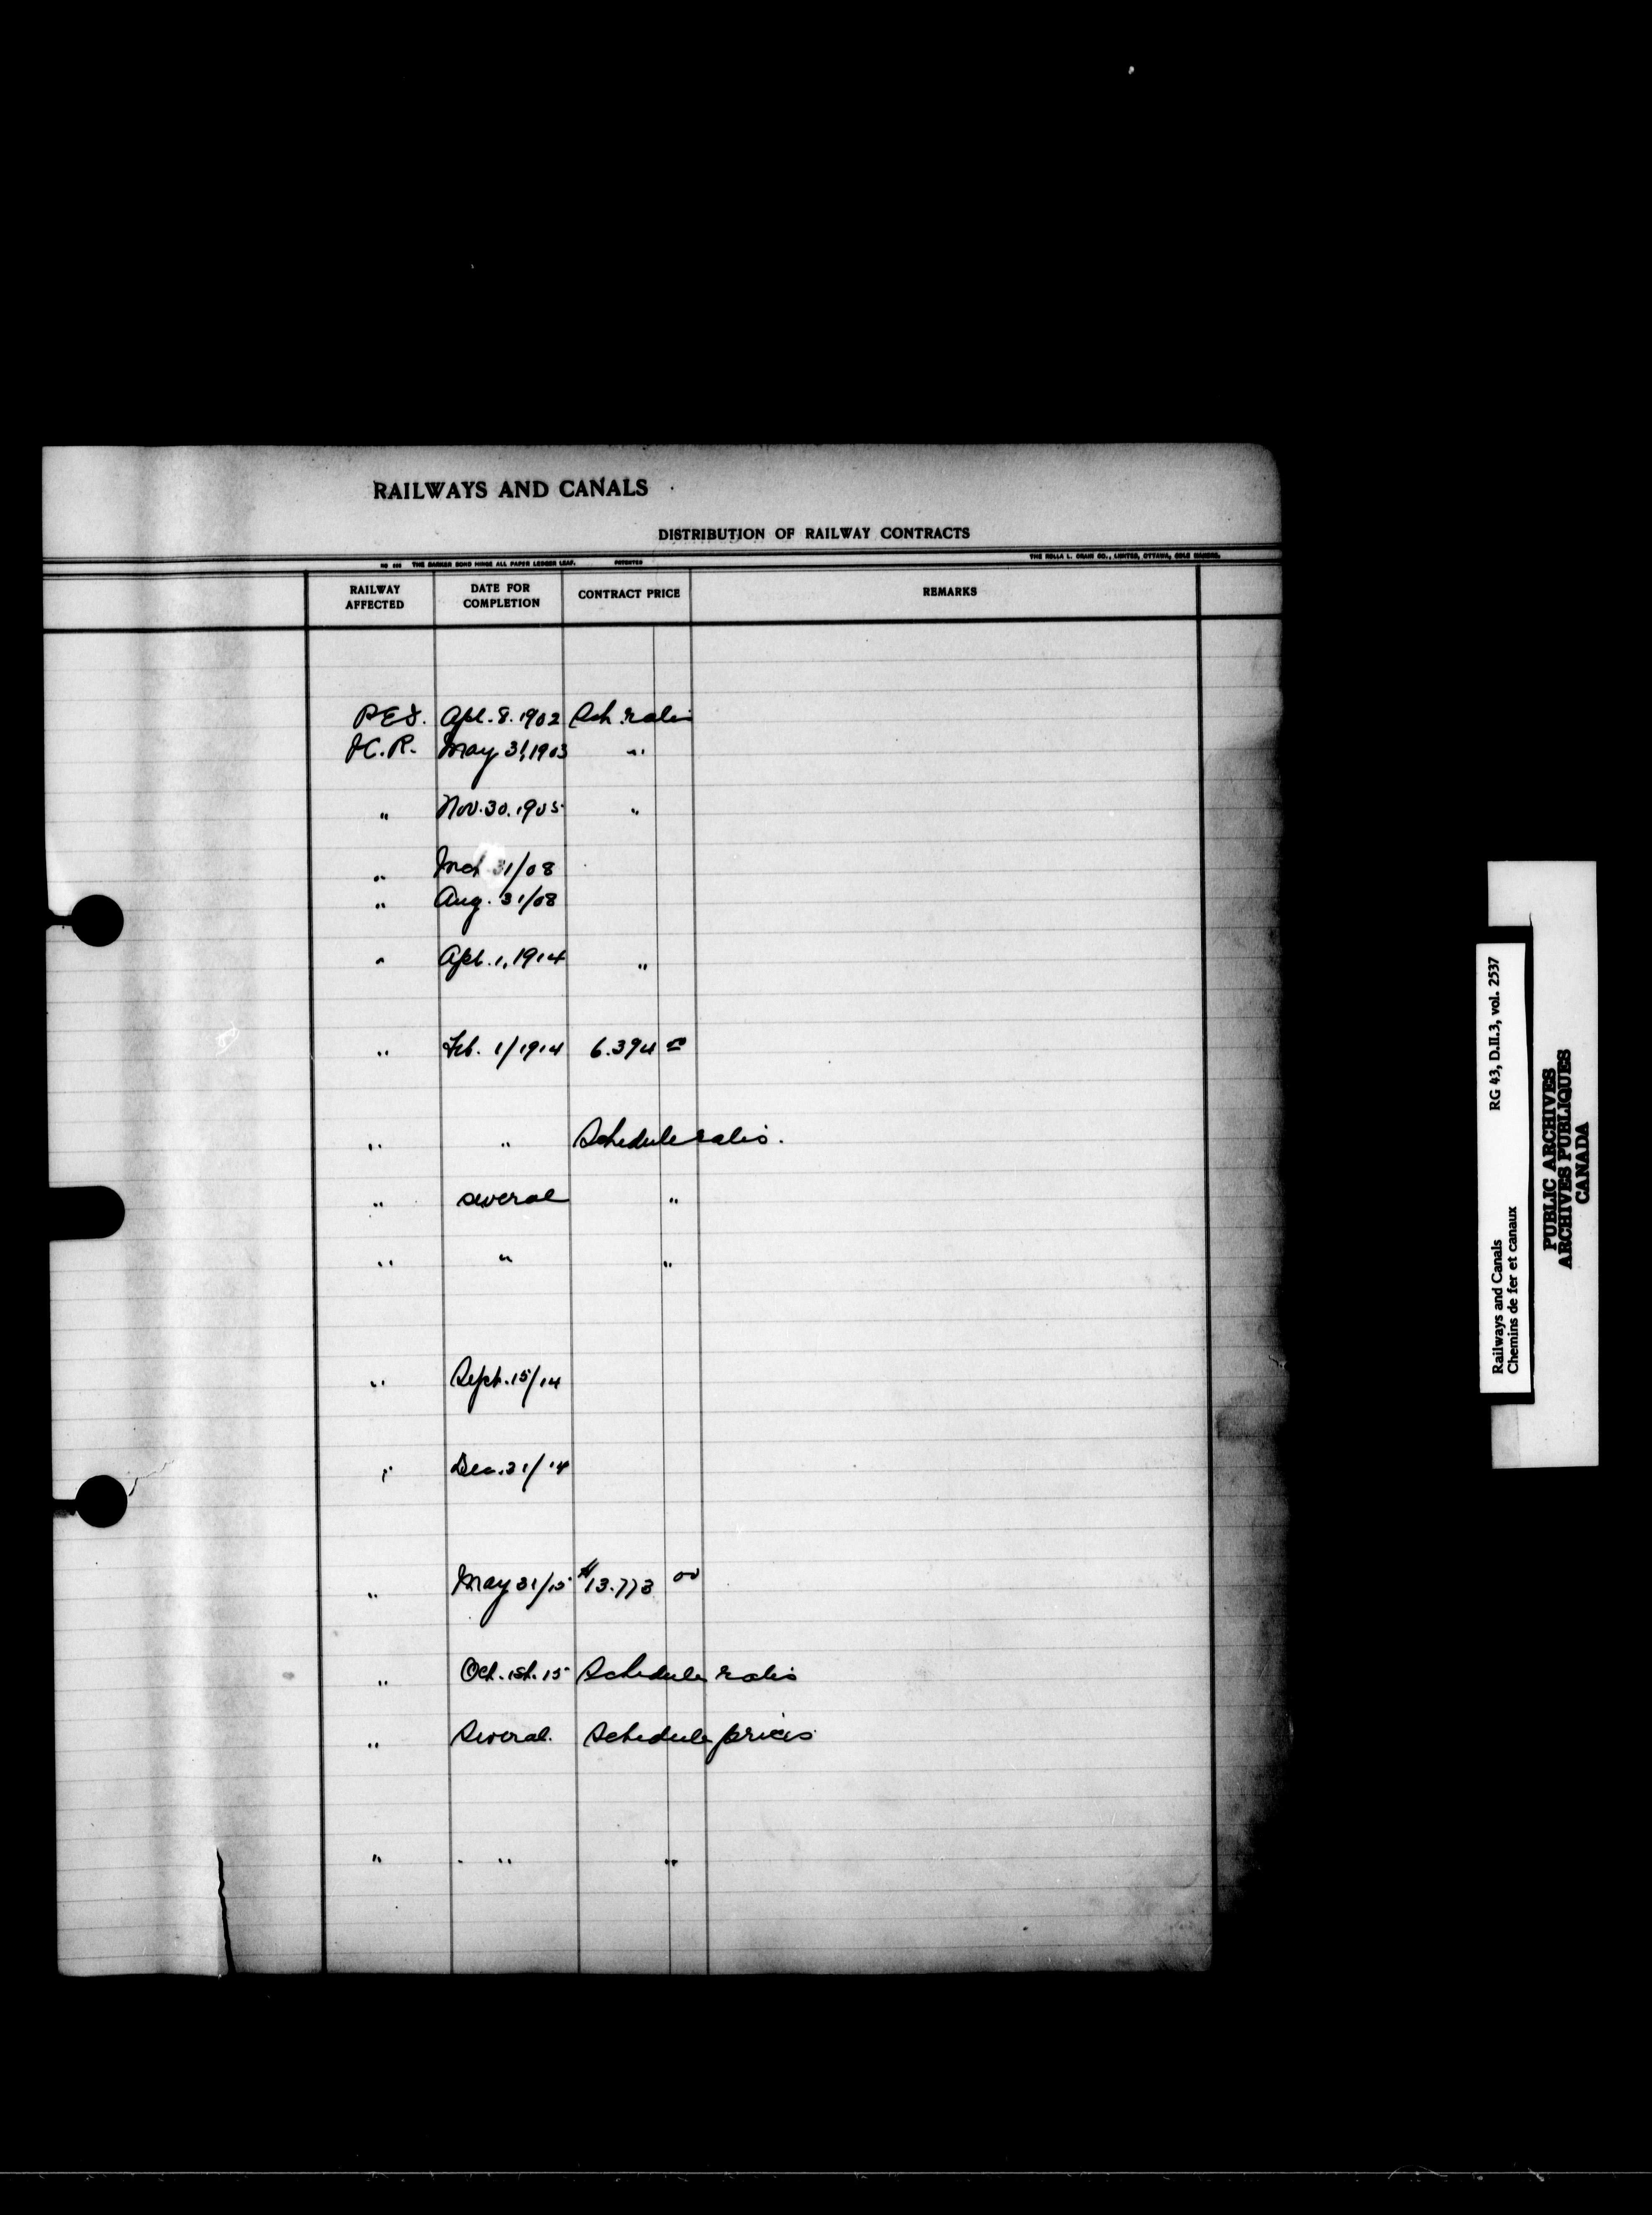 RAILWAYS AND CANALS
DISTRIBUTION OF RAILWAY CONTRACTS
THE BARKER BOND HINGE ALL PAPER LEDGER LEAF. PATENTED THE ROLLA L. CRAIN CO., LIMITED, OTTAWA, SOLE MAKERS.
RAILWAY AFFECTED DATE FOR COMPLETION CONTRACT PRICE REMARKS
P.E.I. Apl. 8. 1902 Sch. rates
I.C.R. May 31, 1903 "
" Nov. 30. 1905 "
" Mch 31/08
" Aug. 31/08
" Apl. 1, 1914 "
" Feb. 1/1914 6.394 00
" " Schedule rates.
" several "
" " "
" Sept. 15/14
" Dec. 31/14
" May 31/15 $13.773 00
" Oct. 1st. 15 Schedule rates
" Several. Schedule prices
" " "
Railways and Canals RG 43, D.II.3, vol. 2537
Chemins de fer et canaux
PUBLIC ARCHIVES
ARCHIVES PUBLIQUES
CANADA